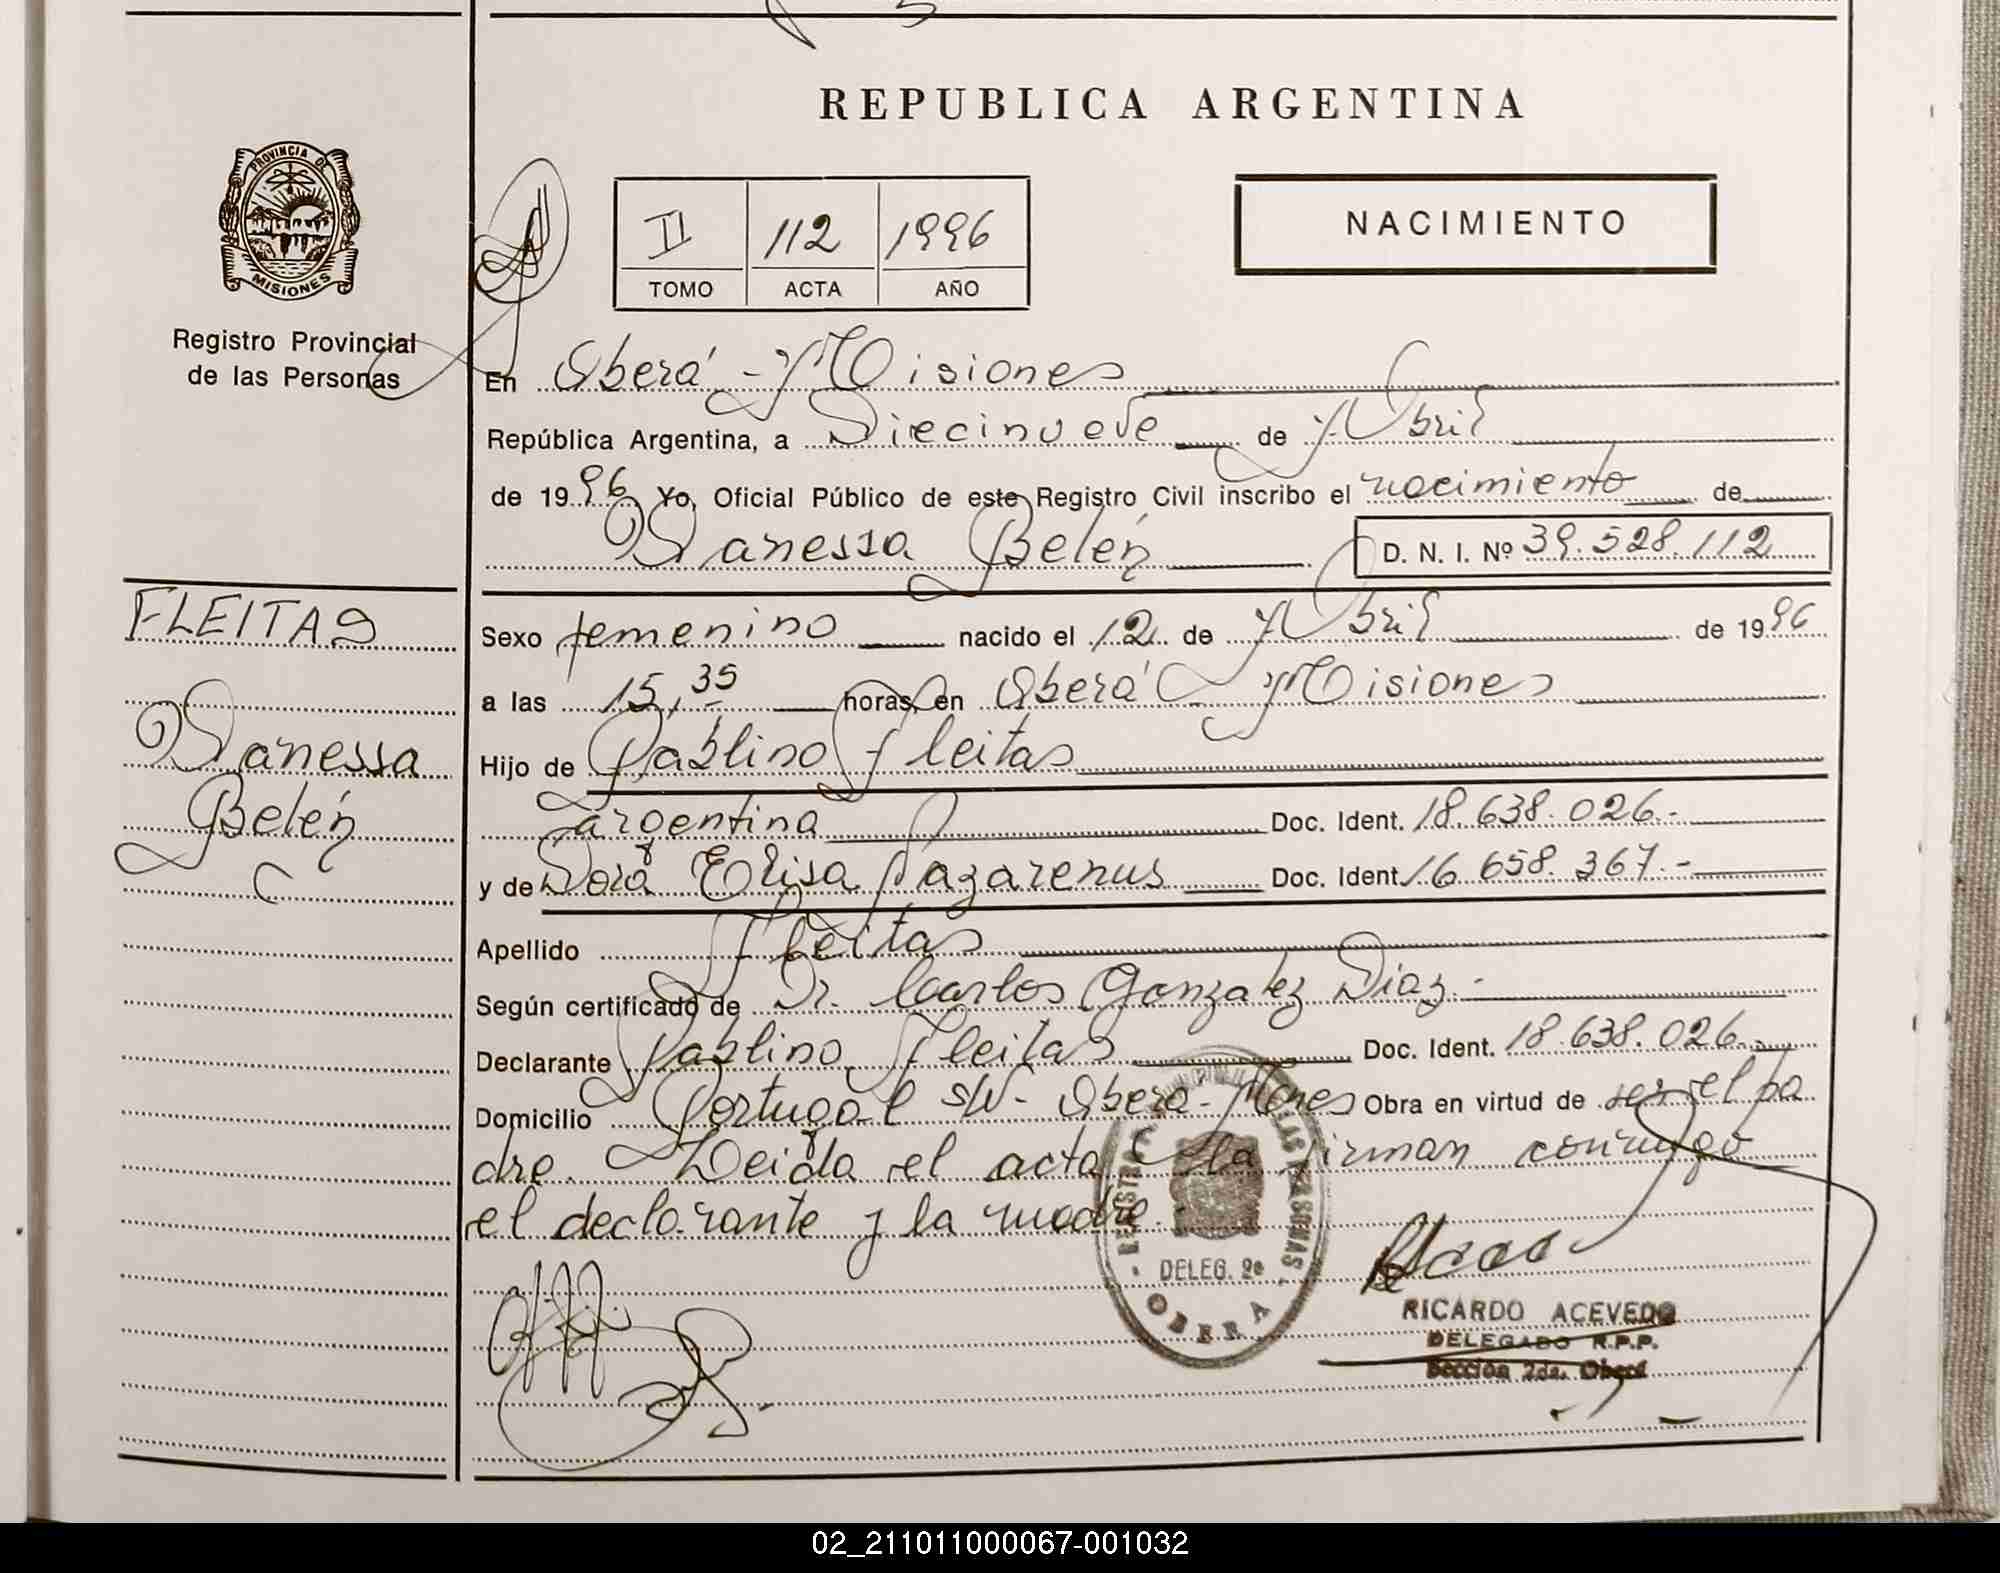 REPUBLICA ARGENTINA
PROVINCIA DE
MISIONES
Registro Provincial
de las Personas
II 112 1996
TOMO ACTA AÑO
NACIMIENTO
En Oberá - Misiones
República Argentina, a Diecinueve de Abril
de 1996 Yo, Oficial Público de este Registro Civil inscribo el nacimiento de
Vanessa Belén D. N. I. Nº 39.528.112
FLEITAS
Vanessa
Belén
Sexo femenino nacido el 12 de Abril de 1996
a las 15,35 horas, en Oberá - Misiones
Hijo de Pablino Fleitas
argentina Doc. Ident. 18.638.026.-
y de Dora Elisa Nazarenus Doc. Ident. 16.658.367.-
Apellido Fleitas
Según certificado de Dr. Carlos Gonzalez Diaz.-
Declarante Pablino Fleitas Doc. Ident. 18.638.026.-
Domicilio Portugal s/n- Oberá- Mnes Obra en virtud de ser el pa
dre. Leida el acta la firman conmigo
el declarante y la madre.
DELEG. 2a
OBERA
RICARDO ACEVEDO
DELEGADO R.P.P.
Sección 2da. Oberá
02_211011000067-001032